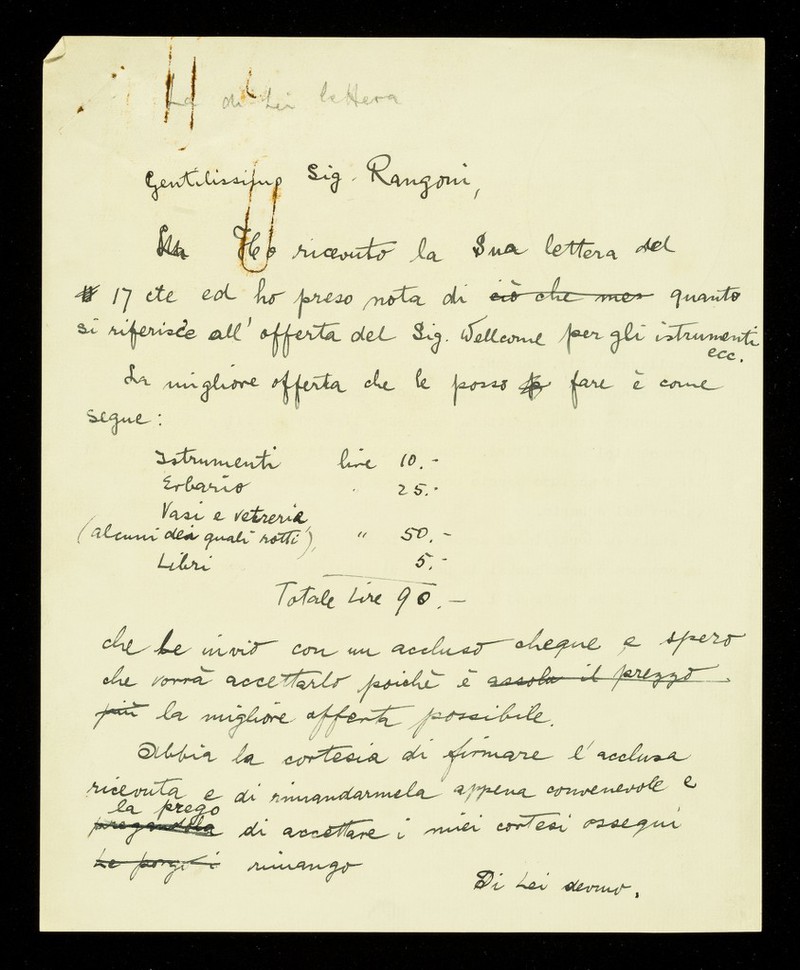 La di Lei lettera
Gentilissimo Sig. Rangoni,
Ho ricevuto la Sua lettera del
17 cte ed ho preso nota di ciò che mes quanto
si riferisce all'offerta del Sig. Wellcome per gli istrumenti
ecc.
La migliore offerta che le posso fare è come
segue:
Istrumenti lire 10.-
Erbario " 25.-
Vasi e vetreria
(alcuni dei quali rotti), " 50.-
Libri 5.-
Totale Lire 90.-
che Le invio con un accluso cheque e spero
che vorrà accettarlo poichè è assolu il prezzo
più la migliore offerta possibile.
Abbia la cortesia di firmare l'acclusa
ricevuta e di rimandarmela appena convenevole e
la prego
pregandola di accettare i miei cortesi ossequi
Le porgo i rimango
Di Lei devmo.